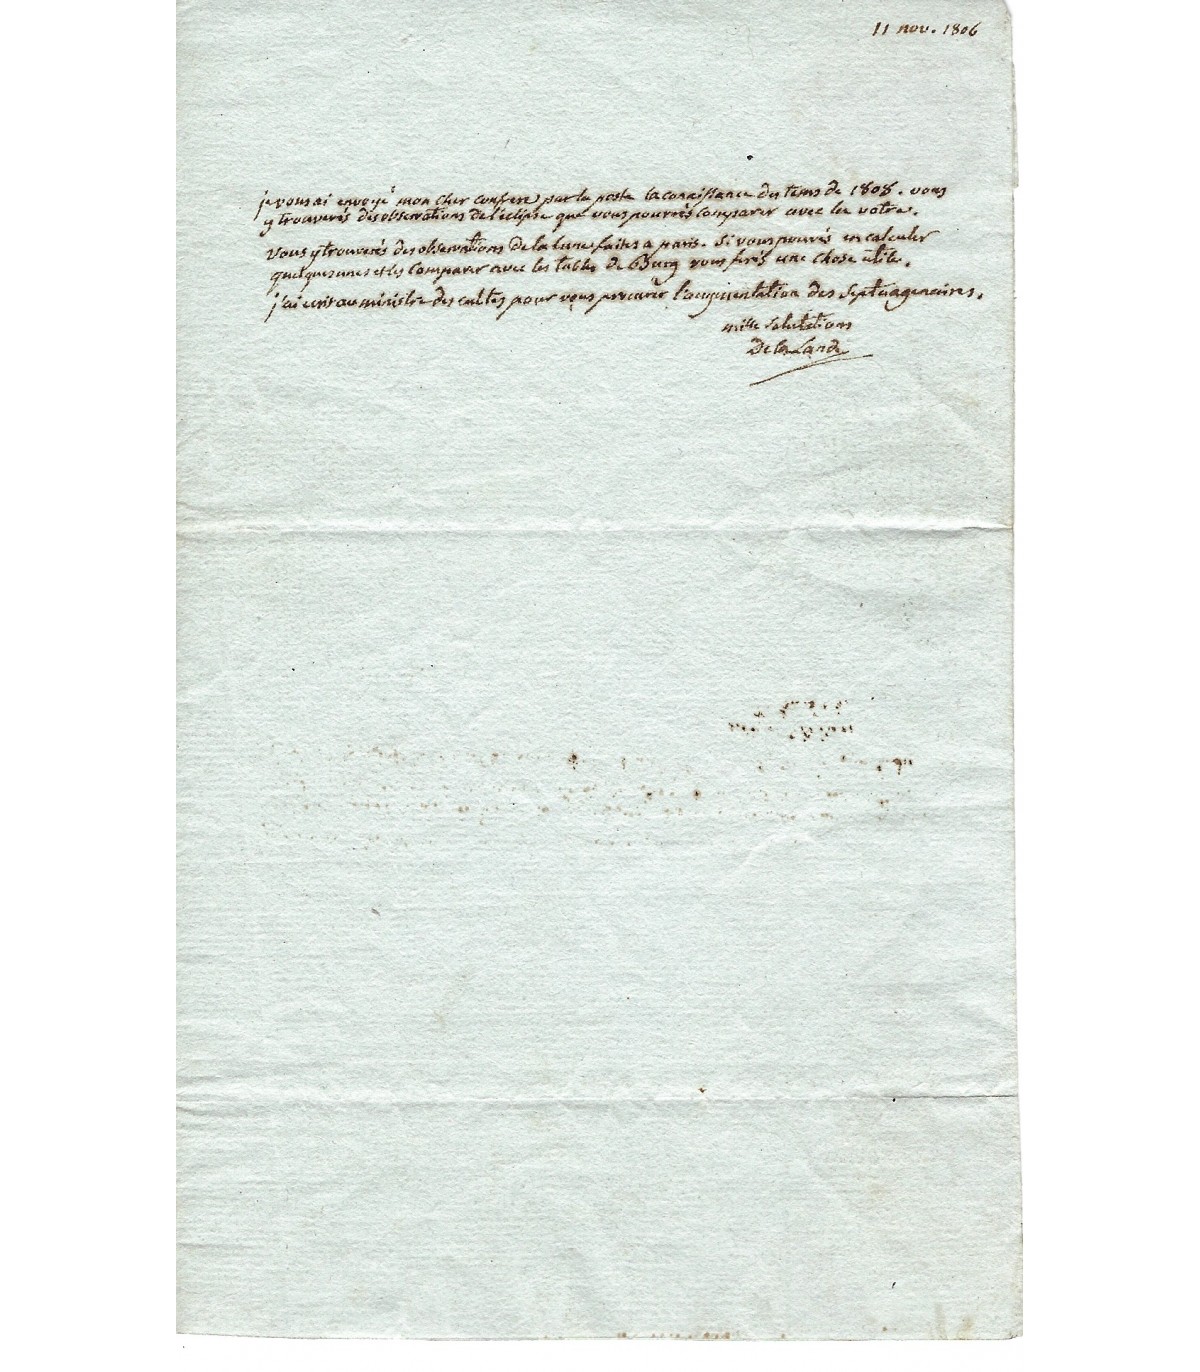 11 nov. 1806
je vous ai envoyé mon cher confrere par la poste la conaissance des tems de 1808. vous
y trouverés des observations de l'eclipse que vous pourrés comparer avec les votres.
Vous y trouverés des observations de la lune faites a paris. Si vous pouvés en calculer
quelques unes et les comparer avec les tables de Burg vous ferés une chose utile.
j'ai ecrit au ministre des cultes pour vous procurer l'augmentation des septuagenaires.
mille salutations
De la Lande